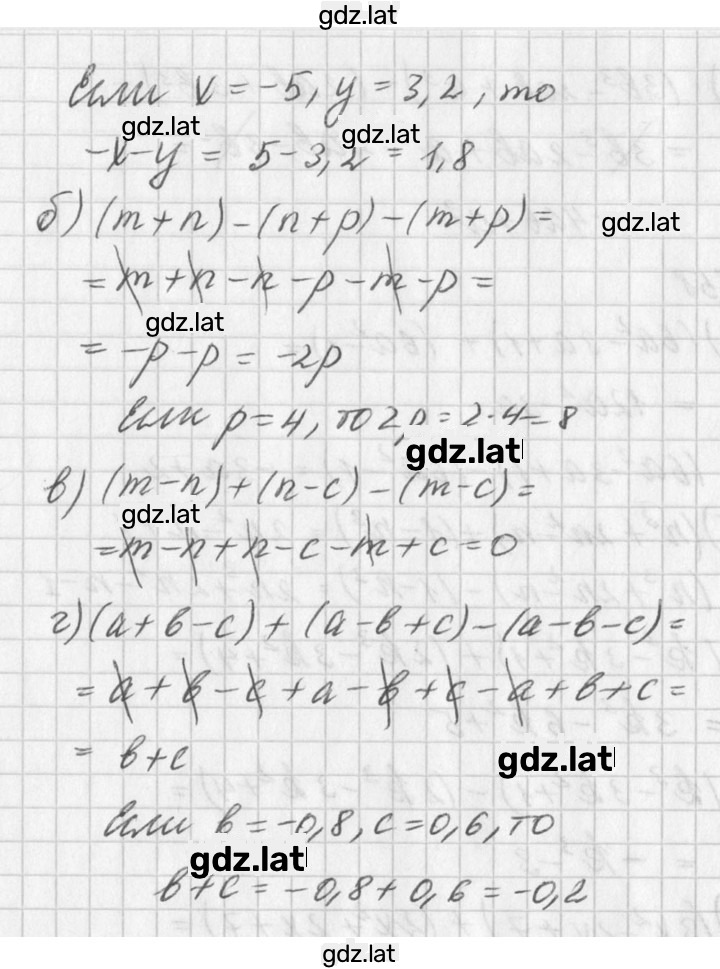 gdz.lat
Если x = -5, y = 3,2, то
gdz.lat
gdz.lat
-x-y = 5-3,2 = 1,8
б) (m+n)-(n+p)-(m+p)=
gdz.lat
= m+n-n-p-m-p=
gdz.lat
= -p-p = -2p
Если p=4, то 2p=2·4=8
gdz.lat
в) (m-n)+(n-c)-(m-c)=
gdz.lat
=m-n+n-c-m+c=0
г)(a+b-c)+(a-b+c)-(a-b-c)=
=a+b-c+a-b+c-a+b+c=
= b+c
gdz.lat
Если b=-0,8, c=0,6, то
gdz.lat
b+c=-0,8+0,6=-0,2
gdz.lat